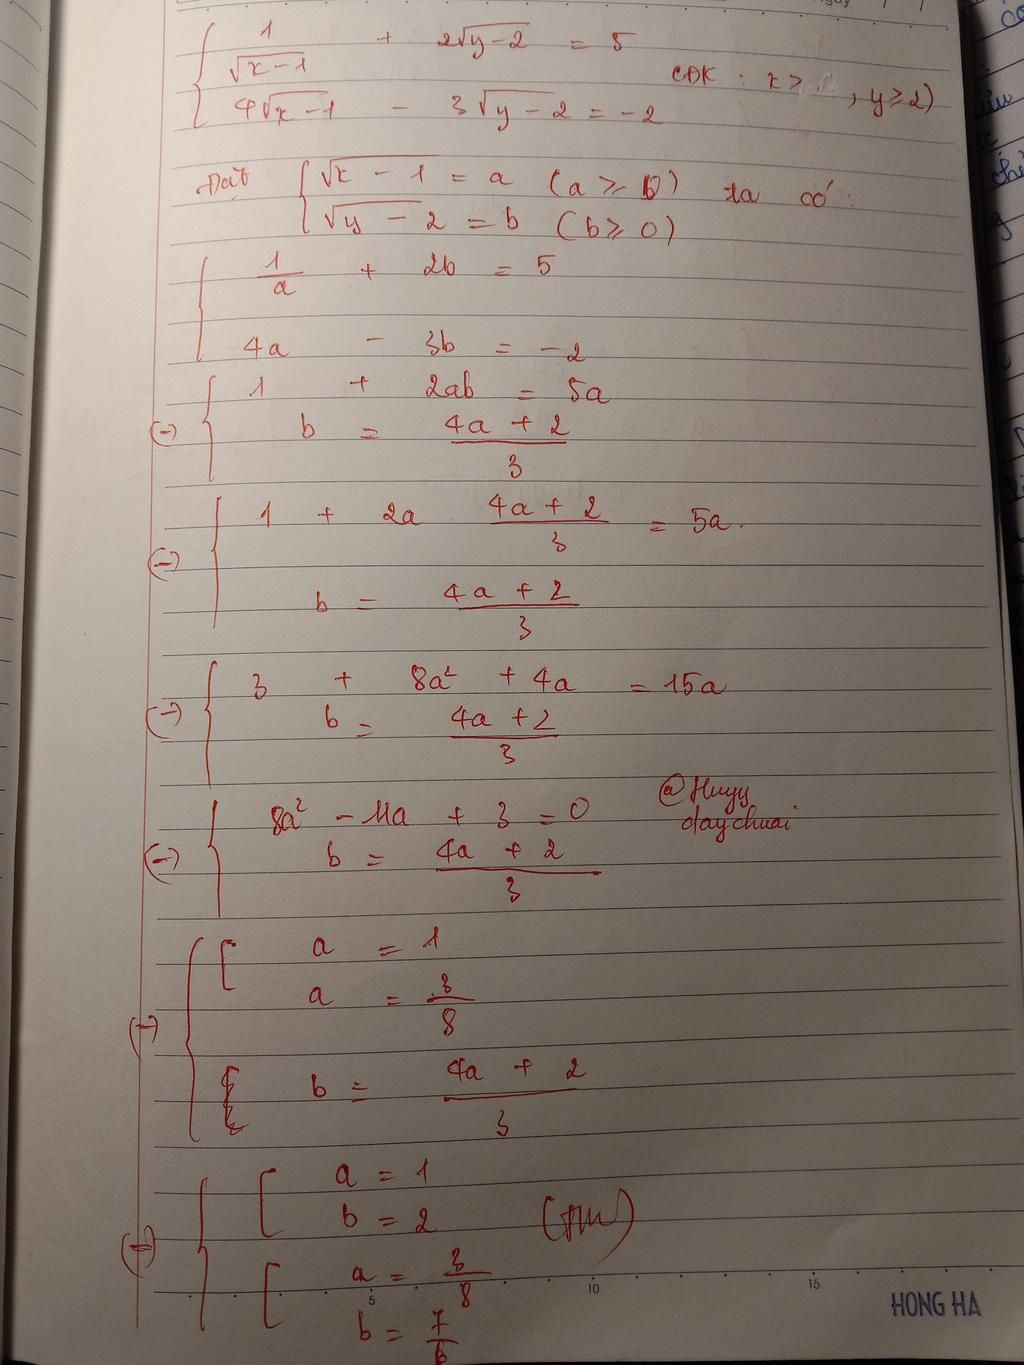 1/√x-1 + 2√y-2 = 5
4√x-1 - 3√y-2 = -2
CĐK : x > , y ≥ 2)
Đặt √x - 1 = a (a ≥ 0) ta có :
√y - 2 = b (b ≥ 0)
1/a + 2b = 5
4a - 3b = -2
(=) 1 + 2ab = 5a
b = 4a + 2/3
(=) 1 + 2a 4a + 2/3 = 5a.
b = 4a + 2/3
(=) 3 + 8a² + 4a = 15a
b = 4a + 2/3
(=) 8a² - 11a + 3 = 0
b = 4a + 2/3
@Huyy
daychuai
(=) a = 1
a = 3/8
b = 4a + 2/3
(=) a = 1
b = 2 (tm)
a = 3/8
b = 7/6
5 10 15
HONG HA